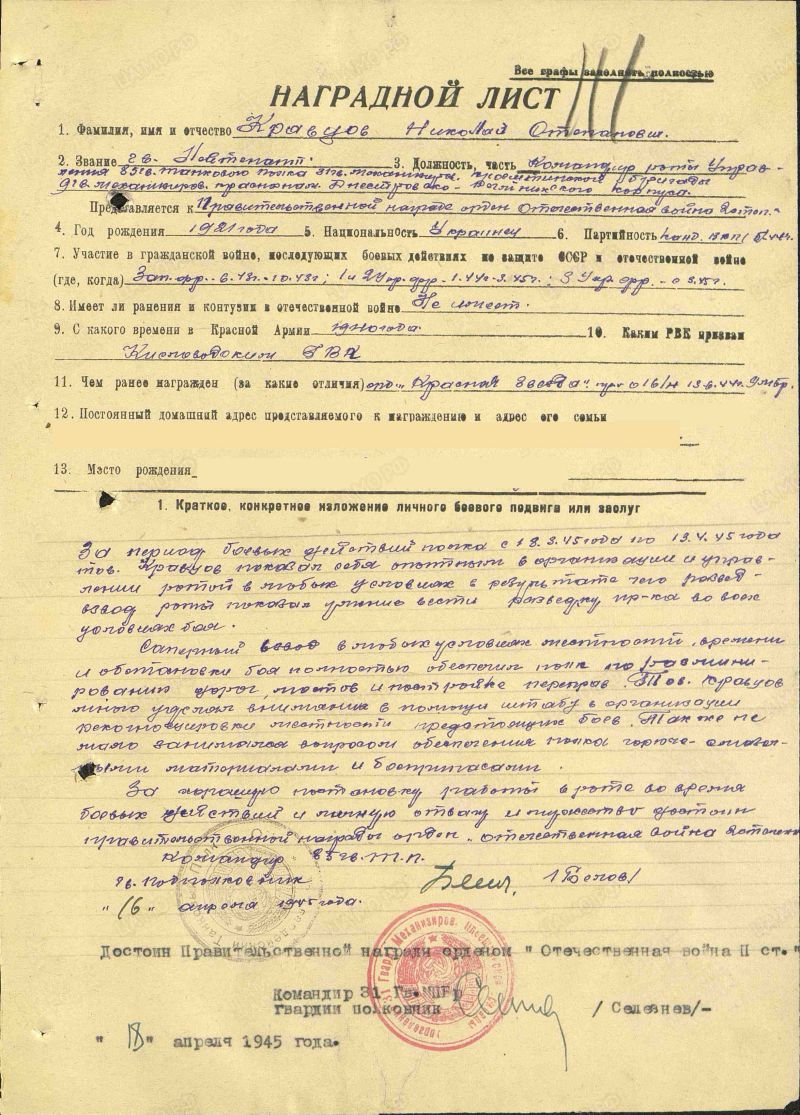 Все графы заполнять полностью
НАГРАДНОЙ ЛИСТ
1. Фамилия, имя и отчество Кравцов Николай Степанович.
2. Звание гв. Лейтенант. 3. Должность, часть Командир роты Управ-
ления 85 гв. танкового полка 31 гв. механизир. бригады
9 гв. механизиров. краснознам. Днестровско-Рымникского корпуса.
Представляется к Правительственной награде орден Отечественная война 2 степ.
4. Год рождения 1921 года 5. Национальность Украинец 6. Партийность канд. ВКП/б/
7. Участие в гражданской войне, последующих боевых действиях по защите СССР и отечественной войне
(где, когда) Зап. фр. - 6.43г. - 10.43г; 1 и 2 Укр. фр. - 1.44г - 3.45г; 3 Укр. фр. - с 3.45г.
8. Имеет ли ранения и контузии в отечественной войне Не имеет.
9. С какого времени в Красной Армии 1940 года. 10. Каким РВК призван
Кисловодским ГВК
11. Чем ранее награжден (за какие отличия) орд. "Красная звезда"
12. Постоянный домашний адрес представляемого к награждению и адрес его семьи
13. Место рождения
1. Краткое, конкретное изложение личного боевого подвига или заслуг
За период боевых действий полка с 18.3.45 года по 13.4.45 года
тов. Кравцов показал себя опытным в организации и управ-
лении ротой в любых условиях в результате чего развед-
взвод роты показал умение вести разведку пр-ка во всех
условиях боя.
Саперный взвод в любых условиях местности, времени
и обстановки боя полностью обеспечил полк по размини-
рованию дорог, мостов и постройке переправ. Тов. Кравцов
много уделял внимания в помощи штабу в организации
рекогносцировки местности предстоящих боев. Так же не
мало занимался вопросом обеспечения полка горюче-смазоч-
ными материалами и боеприпасами.
За хорошую постановку работы в роте во время
боевых действий и личную отвагу и мужество достоин
правительственной награды орден "Отечественная война 2 степени
Командир 85 гв. т.п.
гв. подполковник /Белов/
"16" апреля 1945 года.
Достоин Правительственной награды орденом "Отечественная война II ст."
Командир 31 Гв.МБр
Гвардии полковник /Селезнев/-
"18" апреля 1945 года.